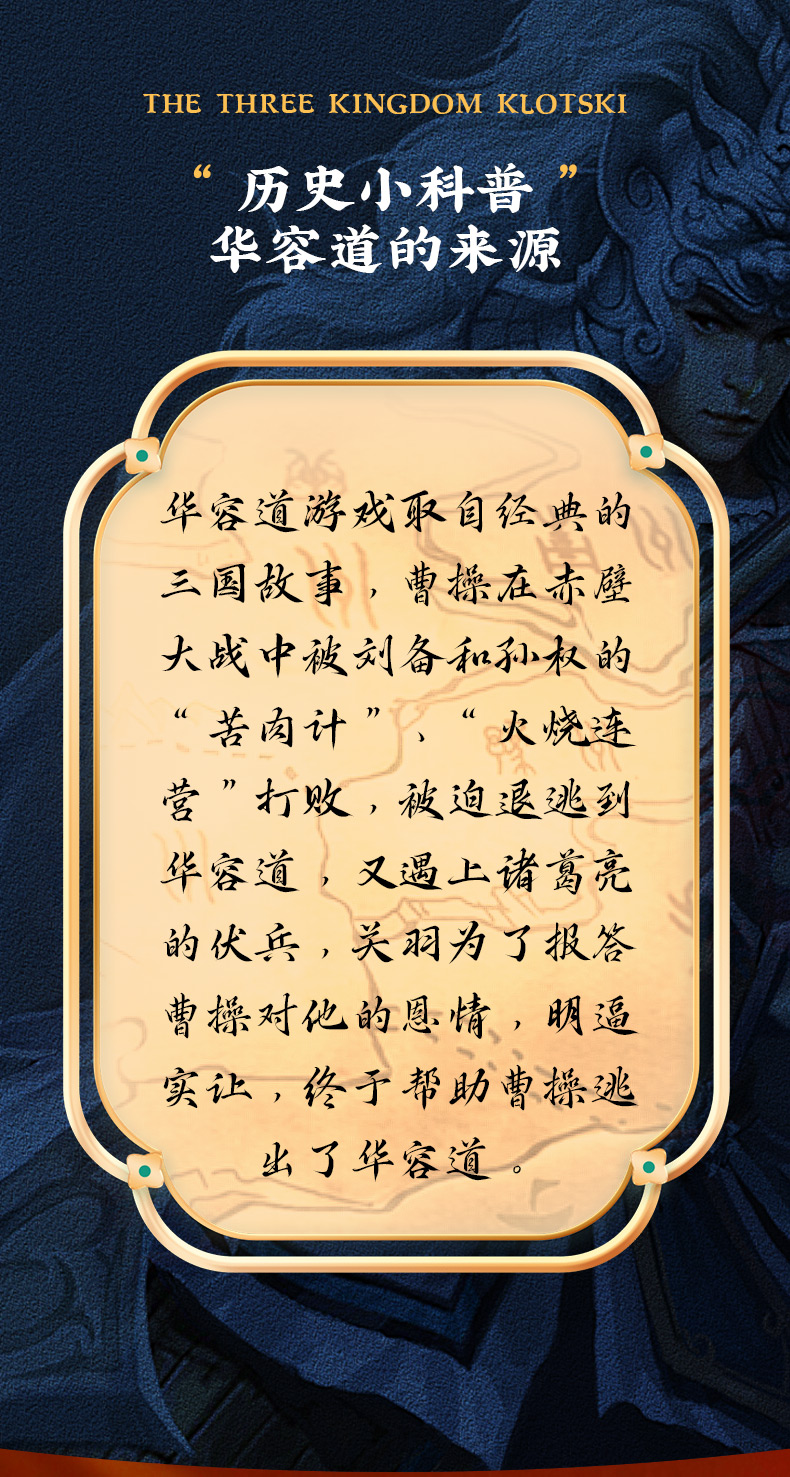 THE THREE KINGDOM KLOTSKI
“历史小科普”
华容道的来源
华容道游戏取自经典的
三国故事,曹操在赤壁
大战中被刘备和孙权的
“苦肉计”、“火烧连
营”打败,被迫退逃到
华容道,又遇上诸葛亮
的伏兵,关羽为了报答
曹操对他的恩情,明逼
实让,终于帮助曹操逃
出了华容道。